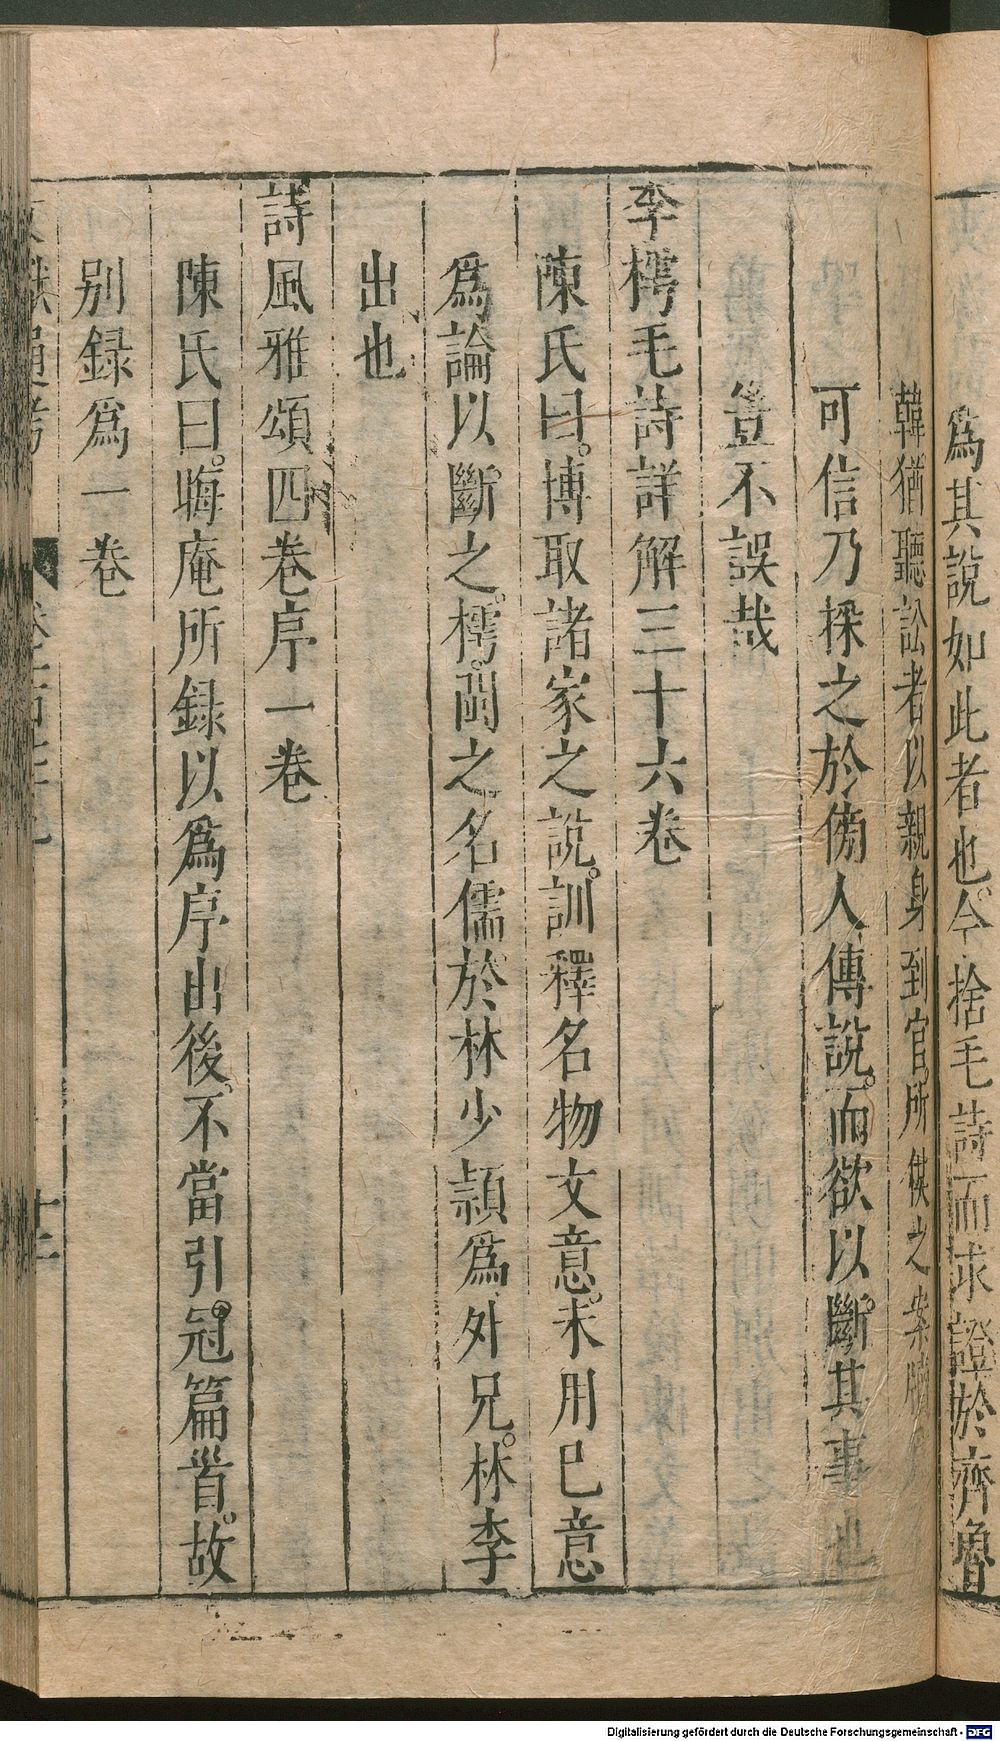 爲其說如此者也今捨毛詩而求證於齊魯
韓猶聽訟者以親身到官所供之案牘
可信乃採之於傍人傳說而欲以斷其事也
豈不誤哉
李樗毛詩詳解三十六卷
陳氏曰博取諸家之說訓釋名物文意末用己意
爲論以斷之樗閩之名儒於林少頴爲外兄林李
出也
詩風雅頌四卷序一卷
陳氏曰晦庵所録以爲序出後不當引冠篇首故
別録爲一卷
Digitalisierung gefördert durch die Deutsche Forschungsgemeinschaft - DFG